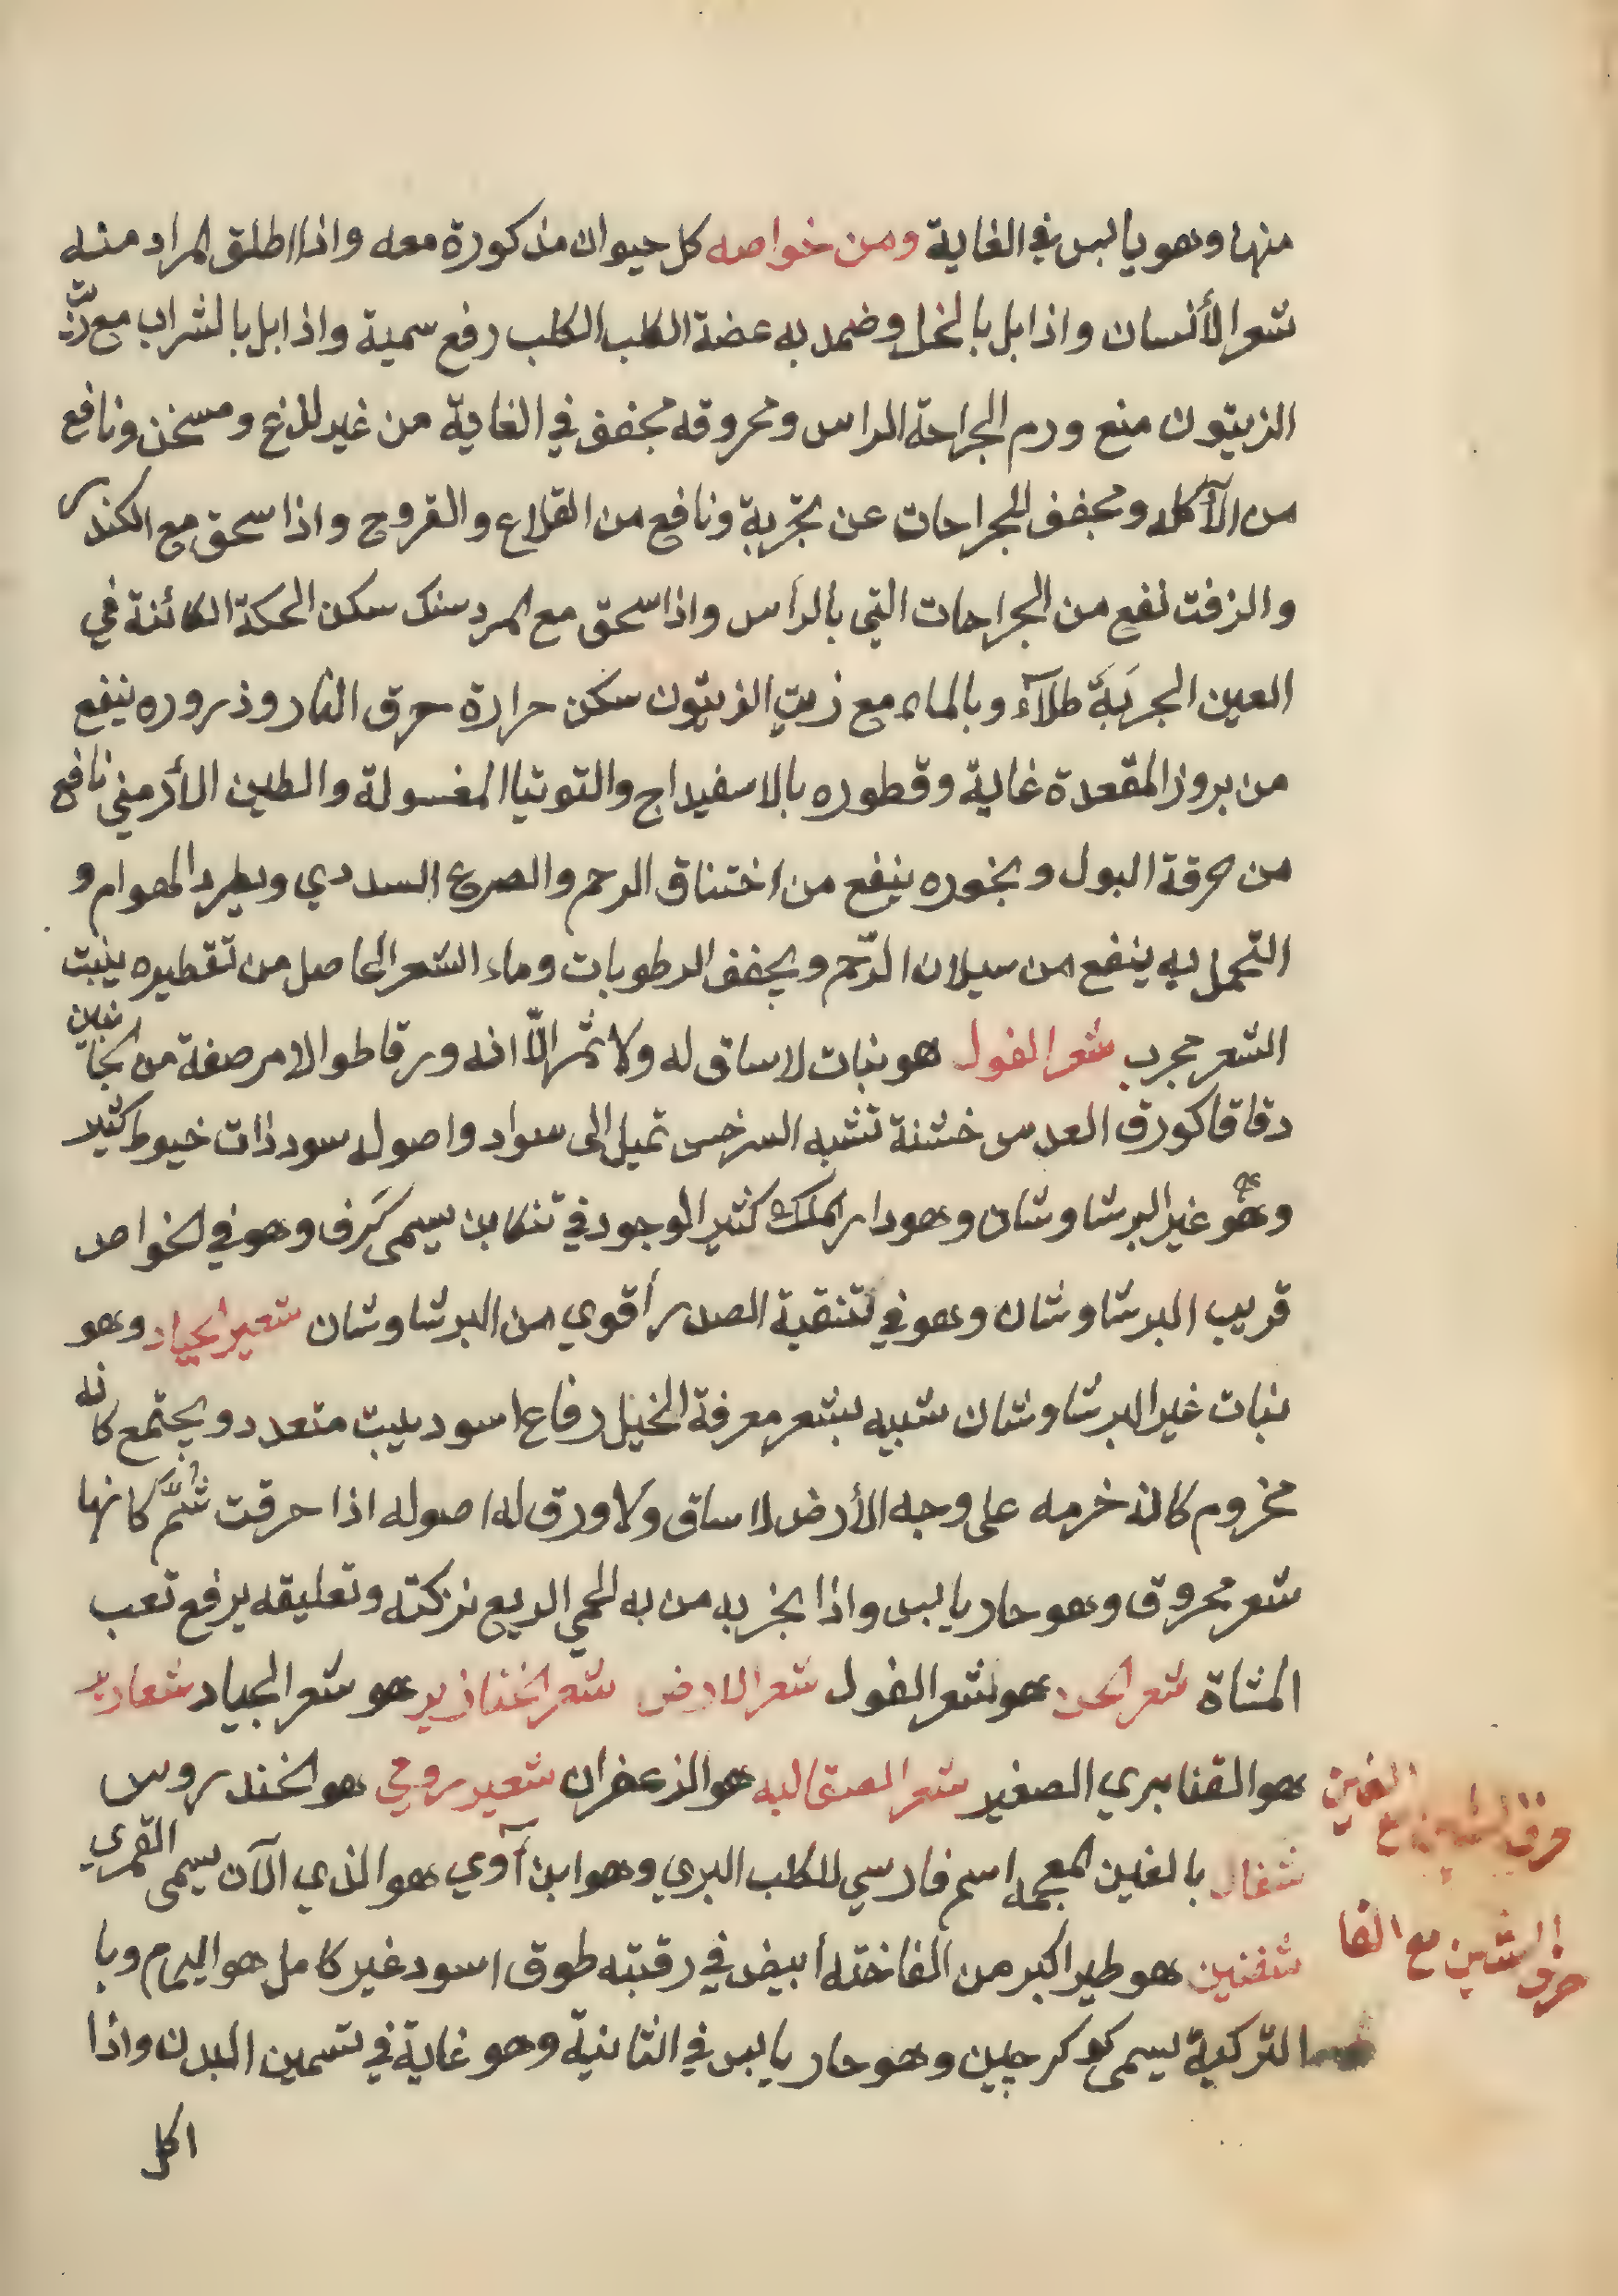 منها وهو يابس في الغاية ومن خواصه كل حيوان مذكورة معه واذا اطلق المراد منه
شعر الأنسان واذا بل بالخل وضمد به عضة الكلب الكلب رفع سمية واذا بل بالشراب مع زيت
الزيتون منع ورم الجراحة الراس ومحروقه مجفف في الغاية من غير لذع ومسخن ونافع
من الآكله ومجفف للجراحات عن تجربة ونافع من القلاع والقروح واذا سحق مع الكندر
والزفت نفع من الجراحات التي بالرأس واذا سحق مع المردسنك سكن الحكة الكائنة في
العين الجربَة طلآءً وبالماء مع زيت الزيتون سكن حرارة حرق النار وذروره ينفع
من بروز المقعدة غاية وقطوره بالاسفيداج والتوتيا المغسولة والطين الأرمني نافع
من حرقة البول وبخوره ينفع من اختناق الرحم والصرع السددي ويطرد الهوام و
التحمل به ينفع من سيلان الرّحم ويجفف الرطوبات وماء الشعر الحاصل من تقطيره ينبت
الشعر مجرب شعر الغول هو نبات لا ساق له ولا ثمر الّا انه ورقا طوالا مرصفة من الجانبين
دقاقا كورق العدس خشنة تشبه السرخس تميل الى سواد واصوله سود ذات خيوط كثير
وهو غير البرشاوشان وهو دار الملك كثير الوجود في تنكابن يسمى كَرف وهو في الخواص
قريب البرشاوشان وهو في تنقية الصدر أقوي من البرشاوشان شعير الجياد وهو
نبات غير البرشاوشان شبيه بشعر معرفة الخيل رفاع اسود يبيت متعدد ويجتمع كانه
مخروم كانه خرمه على وجه الأرض لا ساق ولا ورق له اصوله اذا حرقت شُمَّ كانها
شعر محروق وهو حار يابس واذا بخر به من به الحمي الربع تركته وتعليقه يرفع تعب
المشاة شعر الجن هو شعر الغول شعر الارض شعر الخنازير هو شعر الجياد شعارير
هو القنابري الصغير شعر الصقالبه هو الزعفران شعير رومي هو الخندروس
حرف الشين مع الغين
شغال بالغين المعجمه اسم فارسي للكلب البري وهو ابن آوي هو الذي الآن يسمى القمري
حرف الشين مع الفا
شفنين هو طير اكبر من الفاخته أبيض في رقبته طوق اسود غير كامل هو اليمام وبا
التركية يسمى كوكرجين وهو حار يابس في الثانية وهو غاية في تسمين البدن واذا
اكل